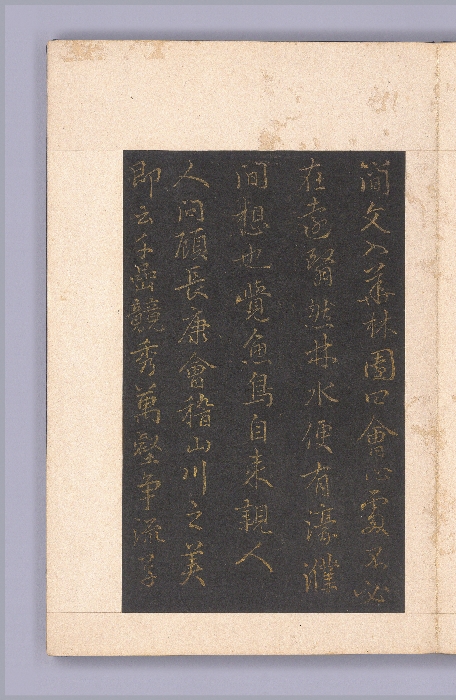 簡文入華林園曰會心處不必
在遠翳然林水便有濠濮
間想也覺魚鳥自来親人
人問顧長康會稽山川之美
即云千嵒競秀萬壑争流草